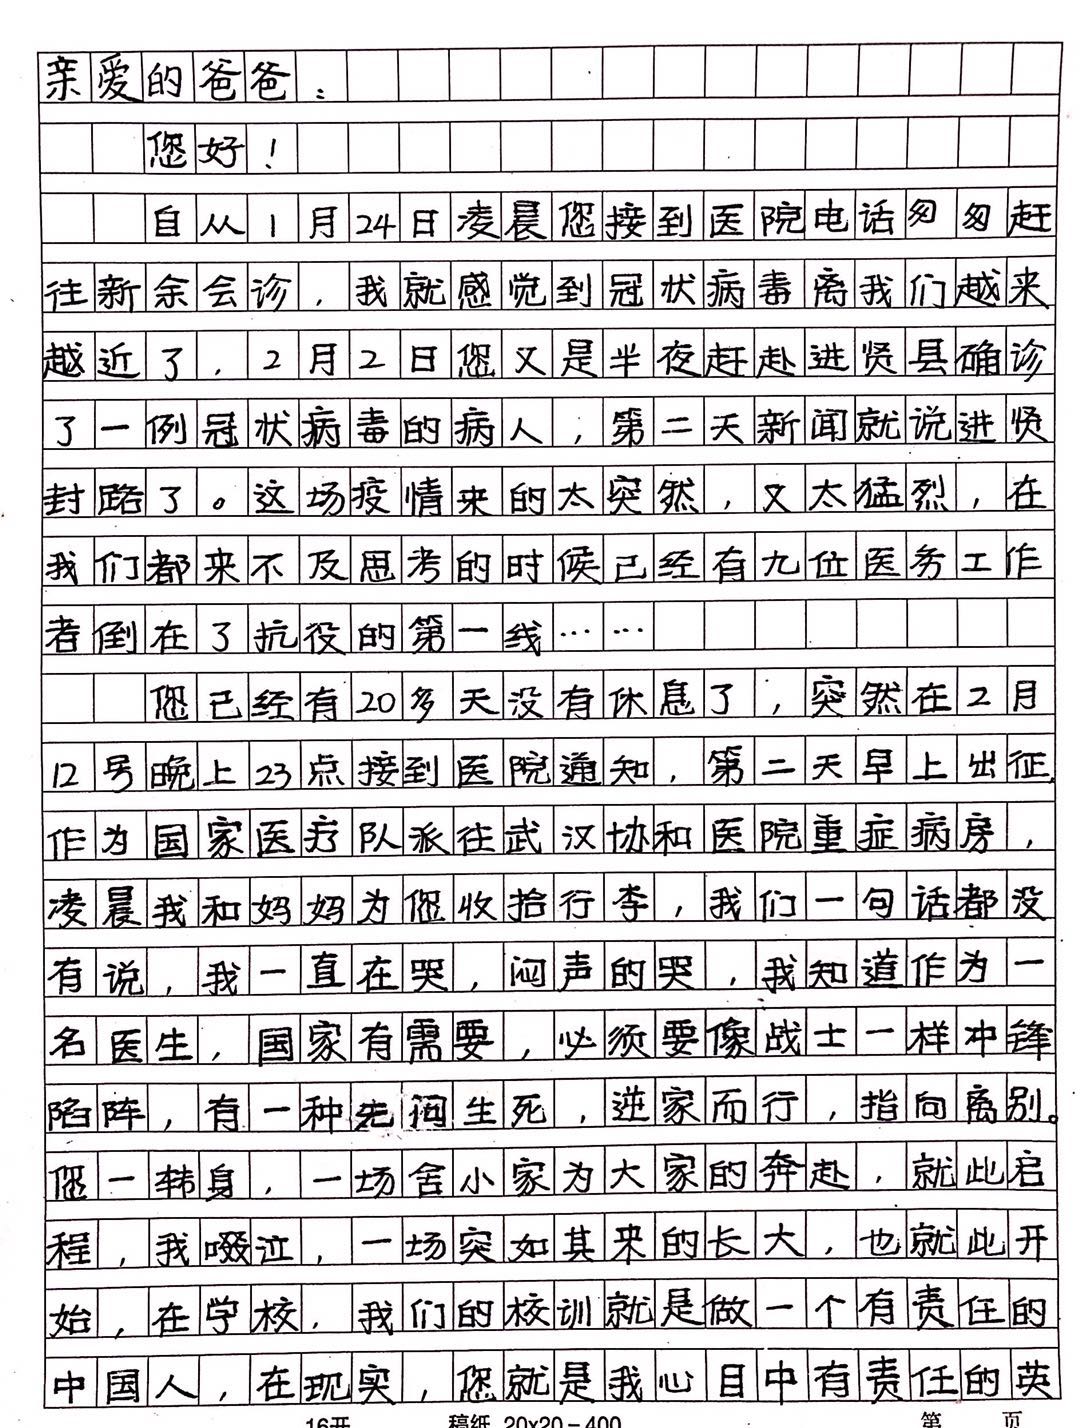 亲爱的爸爸：
您好！
自从1月24日凌晨您接到医院电话匆匆赶
往新余会诊，我就感觉到冠状病毒离我们越来
越近了，2月2日您又是半夜赶赴进贤县确诊
了一例冠状病毒的病人，第二天新闻就说进贤
封路了。这场疫情来的太突然，又太猛烈，在
我们都来不及思考的时候已经有九位医务工作
者倒在了抗役的第一线……
您已经有20多天没有休息了，突然在2月
12号晚上23点接到医院通知，第二天早上出征，
作为国家医疗队派往武汉协和医院重症病房，
凌晨我和妈妈为您收拾行李，我们一句话都没
有说，我一直在哭，闷声的哭，我知道作为一
名医生，国家有需要，必须要像战士一样冲锋
陷阵，有一种先问生死，逆家而行，指向离别。
您一转身，一场舍小家为大家的奔赴，就此启
程，我啜泣，一场突如其来的长大，也就此开
始，在学校，我们的校训就是做一个有责任的
中国人，在现实，您就是我心目中有责任的英
16开 稿纸 20×20=400 第 页